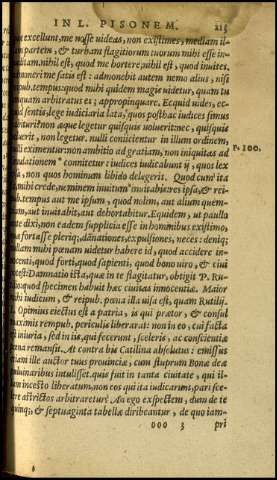 IN L. PISONEM. 213
excellunt, me nosse uideas, non existimes, mediam il-
partem, & turbam flagitiorum tuorum mihi esse in-
ditam. nihil est, quod me hortere; nihil est, quod inuites.
meri me satis est: admonebit autem nemo alius, nisi
tempus: quod mihi quidem magis uidetur, quam tu
quam arbitratus es; appropinquare. Ecquid uides, ec-
sentis, lege iudiciaria lata, quos posthac iudices simus
turi? non aeque legetur quisquis uoluerit: nec, quisquis
uerit, non legetur. nulli conijcientur in illum ordinem,
eximentur: non ambitio ad gratiam, non iniquitas ad
dationem connitetur: iudices iudicabunt ij, quos lex
P. 100.
, non quos hominum libido delegerit. Quod cum ita
mihi crede, neminem inuitum inuitabis: res ipsa, & rei-
tempus aut me ipsum, quod nolim, aut alium quem-
am, aut inuitabit, aut dehortabitur. Equidem, ut paullo
te dixi, non eadem supplicia esse in hominibus existimo,
fortasse pleriq; damnationes, expulsiones, neces: deniq;
mihi poenam uidetur habere id, quod accidere in-
centi; quod forti, quod sapienti, quod bono uiro, & ciui
test. Damnatio ista, quae in te flagitatur, obtigit P. Ru-
quod specimen habuit haec ciuitas innocentiae. Maior
mihi iudicum, & reipub. poena illa uisa est, quam Rutilij.
Optimus eiectus est a patria, is qui praetor, & consul
maximis reipub. periculis liberarat: non in eo, cui facta
iniuria, sed in iis, qui fecerunt, sceleris, ac conscientiae
poena remansit. At contra bis Catilina absolutus: emissus
etiam ille auctor tuus prouinciae, cum stuprum Bonae deae
puluinaribus intulisset. quis fuit in tanta ciuitate, qui il-
incesto liberatum, non eos qui ita iudicarunt, pari sce-
lere astrictos arbitraretur? An ego exspectem, dum de te
quinq; & septuaginta tabellae diribeantur, de quo iam-
ooo 3 pri